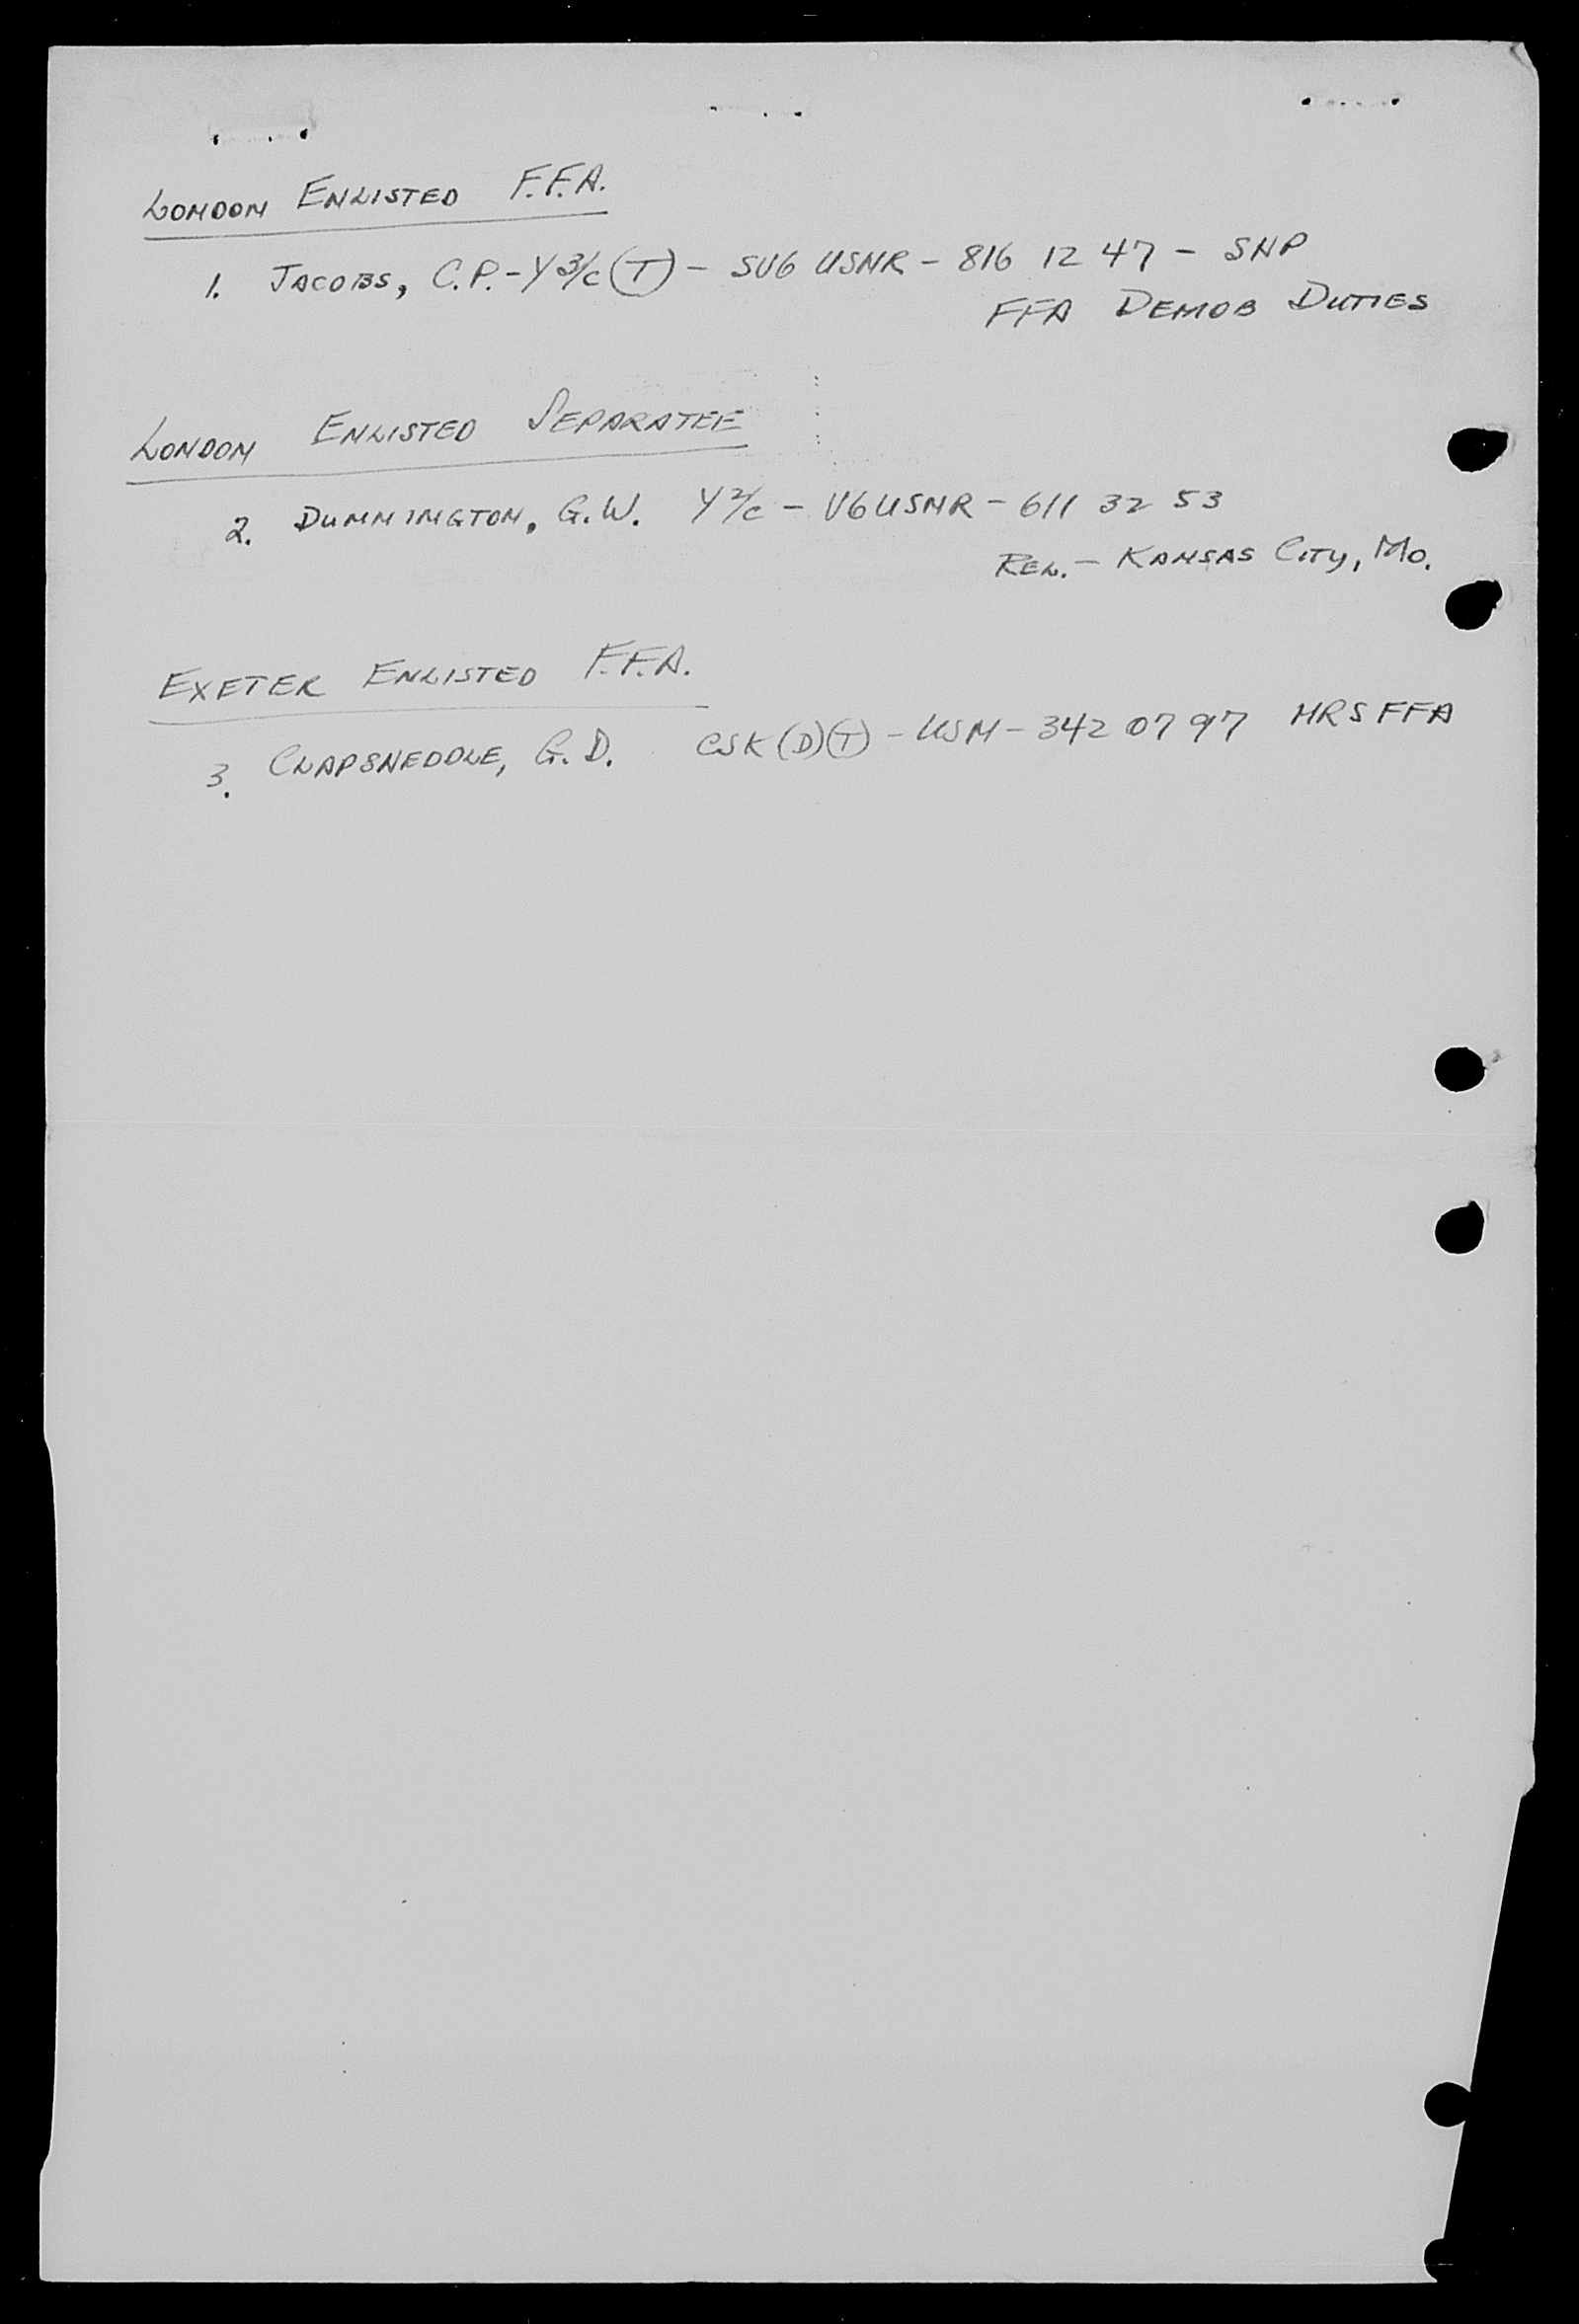 LONDON ENLISTED F.F.A.
1. JACOBS, C.P. - Y 3/c (T) - SV6 USNR - 816 12 47 - SNP
FFA DEMOB DUTIES
LONDON ENLISTED SEPARATEE
2. DUNNINGTON, G.W. Y 2/c - V6 USNR - 611 32 53
REL. - KANSAS CITY, MO.
EXETER ENLISTED F.F.A.
3. CLAPSNEDDLE, G.D. CSK (D)(T) - USN - 342 07 97 NRS FFA